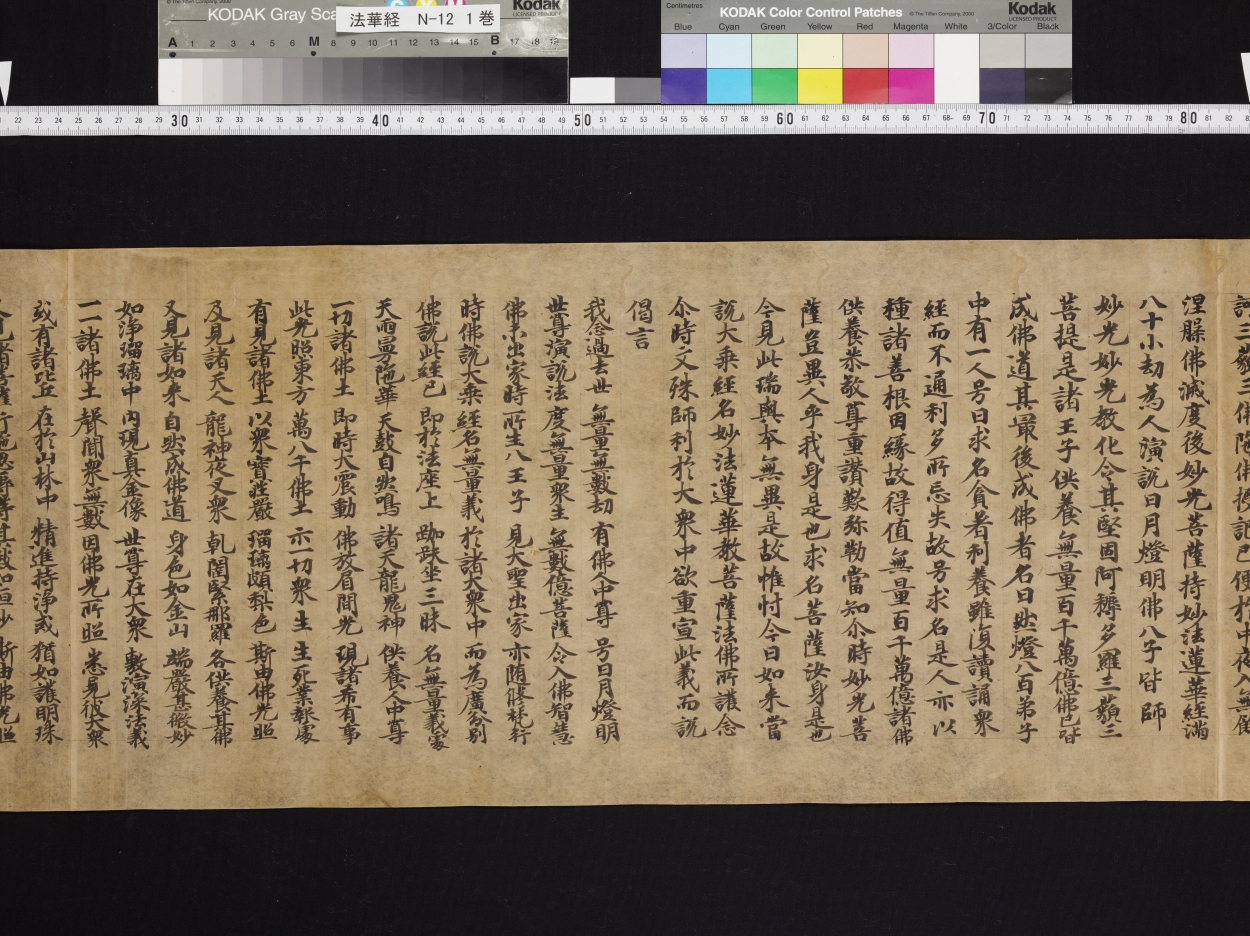 KODAK Gray Scale
法華経 N-12 1巻
Kodak
LICENSED PRODUCT
A 1 2 3 4 5 6 M 8 9 10 11 12 13 14 15 B 17 18 19
Centimetres
KODAK Color Control Patches
© The Tiffen Company, 2000
Kodak
LICENSED PRODUCT
Blue Cyan Green Yellow Red Magenta White 3/Color Black
涅腺佛滅度後妙光菩薩持妙法蓮華経満
八十小劫為人演說日月燈明佛八子皆師
妙光妙光教化令其堅固阿耨多羅三藐三
菩提是諸王子供養無量百千萬億佛已皆
成佛道其最後成佛者名曰燃燈八百弟子
中有一人号曰求名貪著利養雖復讀誦衆
経而不通利多所忘失故号求名是人亦以
種諸善根因緣故得值無量百千萬億諸佛
供養恭敬尊重讚歎弥勒當知尒時妙光菩
薩豈異人乎我身是也求名菩薩汝身是也
今見此瑞與本無異是故惟忖今日如来當
說大乗経名妙法蓮華教菩薩法佛所護念
尒時文殊師利於大衆中欲重宣此義而說
偈言
我念過去世 無量無數劫 有佛人中尊 号日月燈明
世尊演說法 度無量衆生 無數億菩薩 令入佛智慧
佛未出家時 所生八王子 見大聖出家 亦随修梵行
時佛說大乗 経名無量義 於諸大衆中 而為廣分別
佛說此経已 即於法座上 跏趺坐三昧 名無量義處
天雨曼陁華 天鼓自然鳴 諸天龍鬼神 供養人中尊
一切諸佛土 即時大震動 佛放眉間光 現諸希有事
此光照東方 萬八千佛土 示一切衆生 生死業報處
有見諸佛土 以衆寶莊嚴 瑠璃頗梨色 斯由佛光照
及見諸天人 龍神夜叉衆 乹闥緊那羅 各供養其佛
又見諸如来 自然成佛道 身色如金山 端嚴甚微妙
如淨瑠璃中 内現真金像 世尊在大衆 敷演深法義
一一諸佛土 聲聞衆無數 因佛光所照 悉見彼大衆
或有諸比丘 在於山林中 精進持淨戒 猶如護明珠